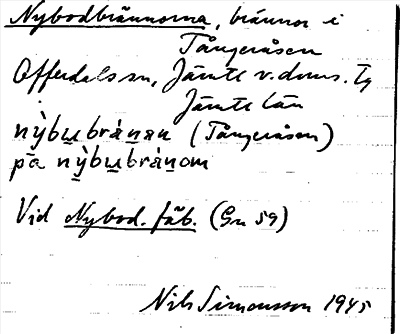 Nybodbrännorna, brännor i
Tångeråsen
Offerdals sn, Jämtl. v. doms. Tg
Jämtl. län
nỳbu̲brán̲an (Tångeråsen)
på nỳbu̲brán̲om
Vid Nybod. fäb. (Gn 59)
Nils Simonsson 1945